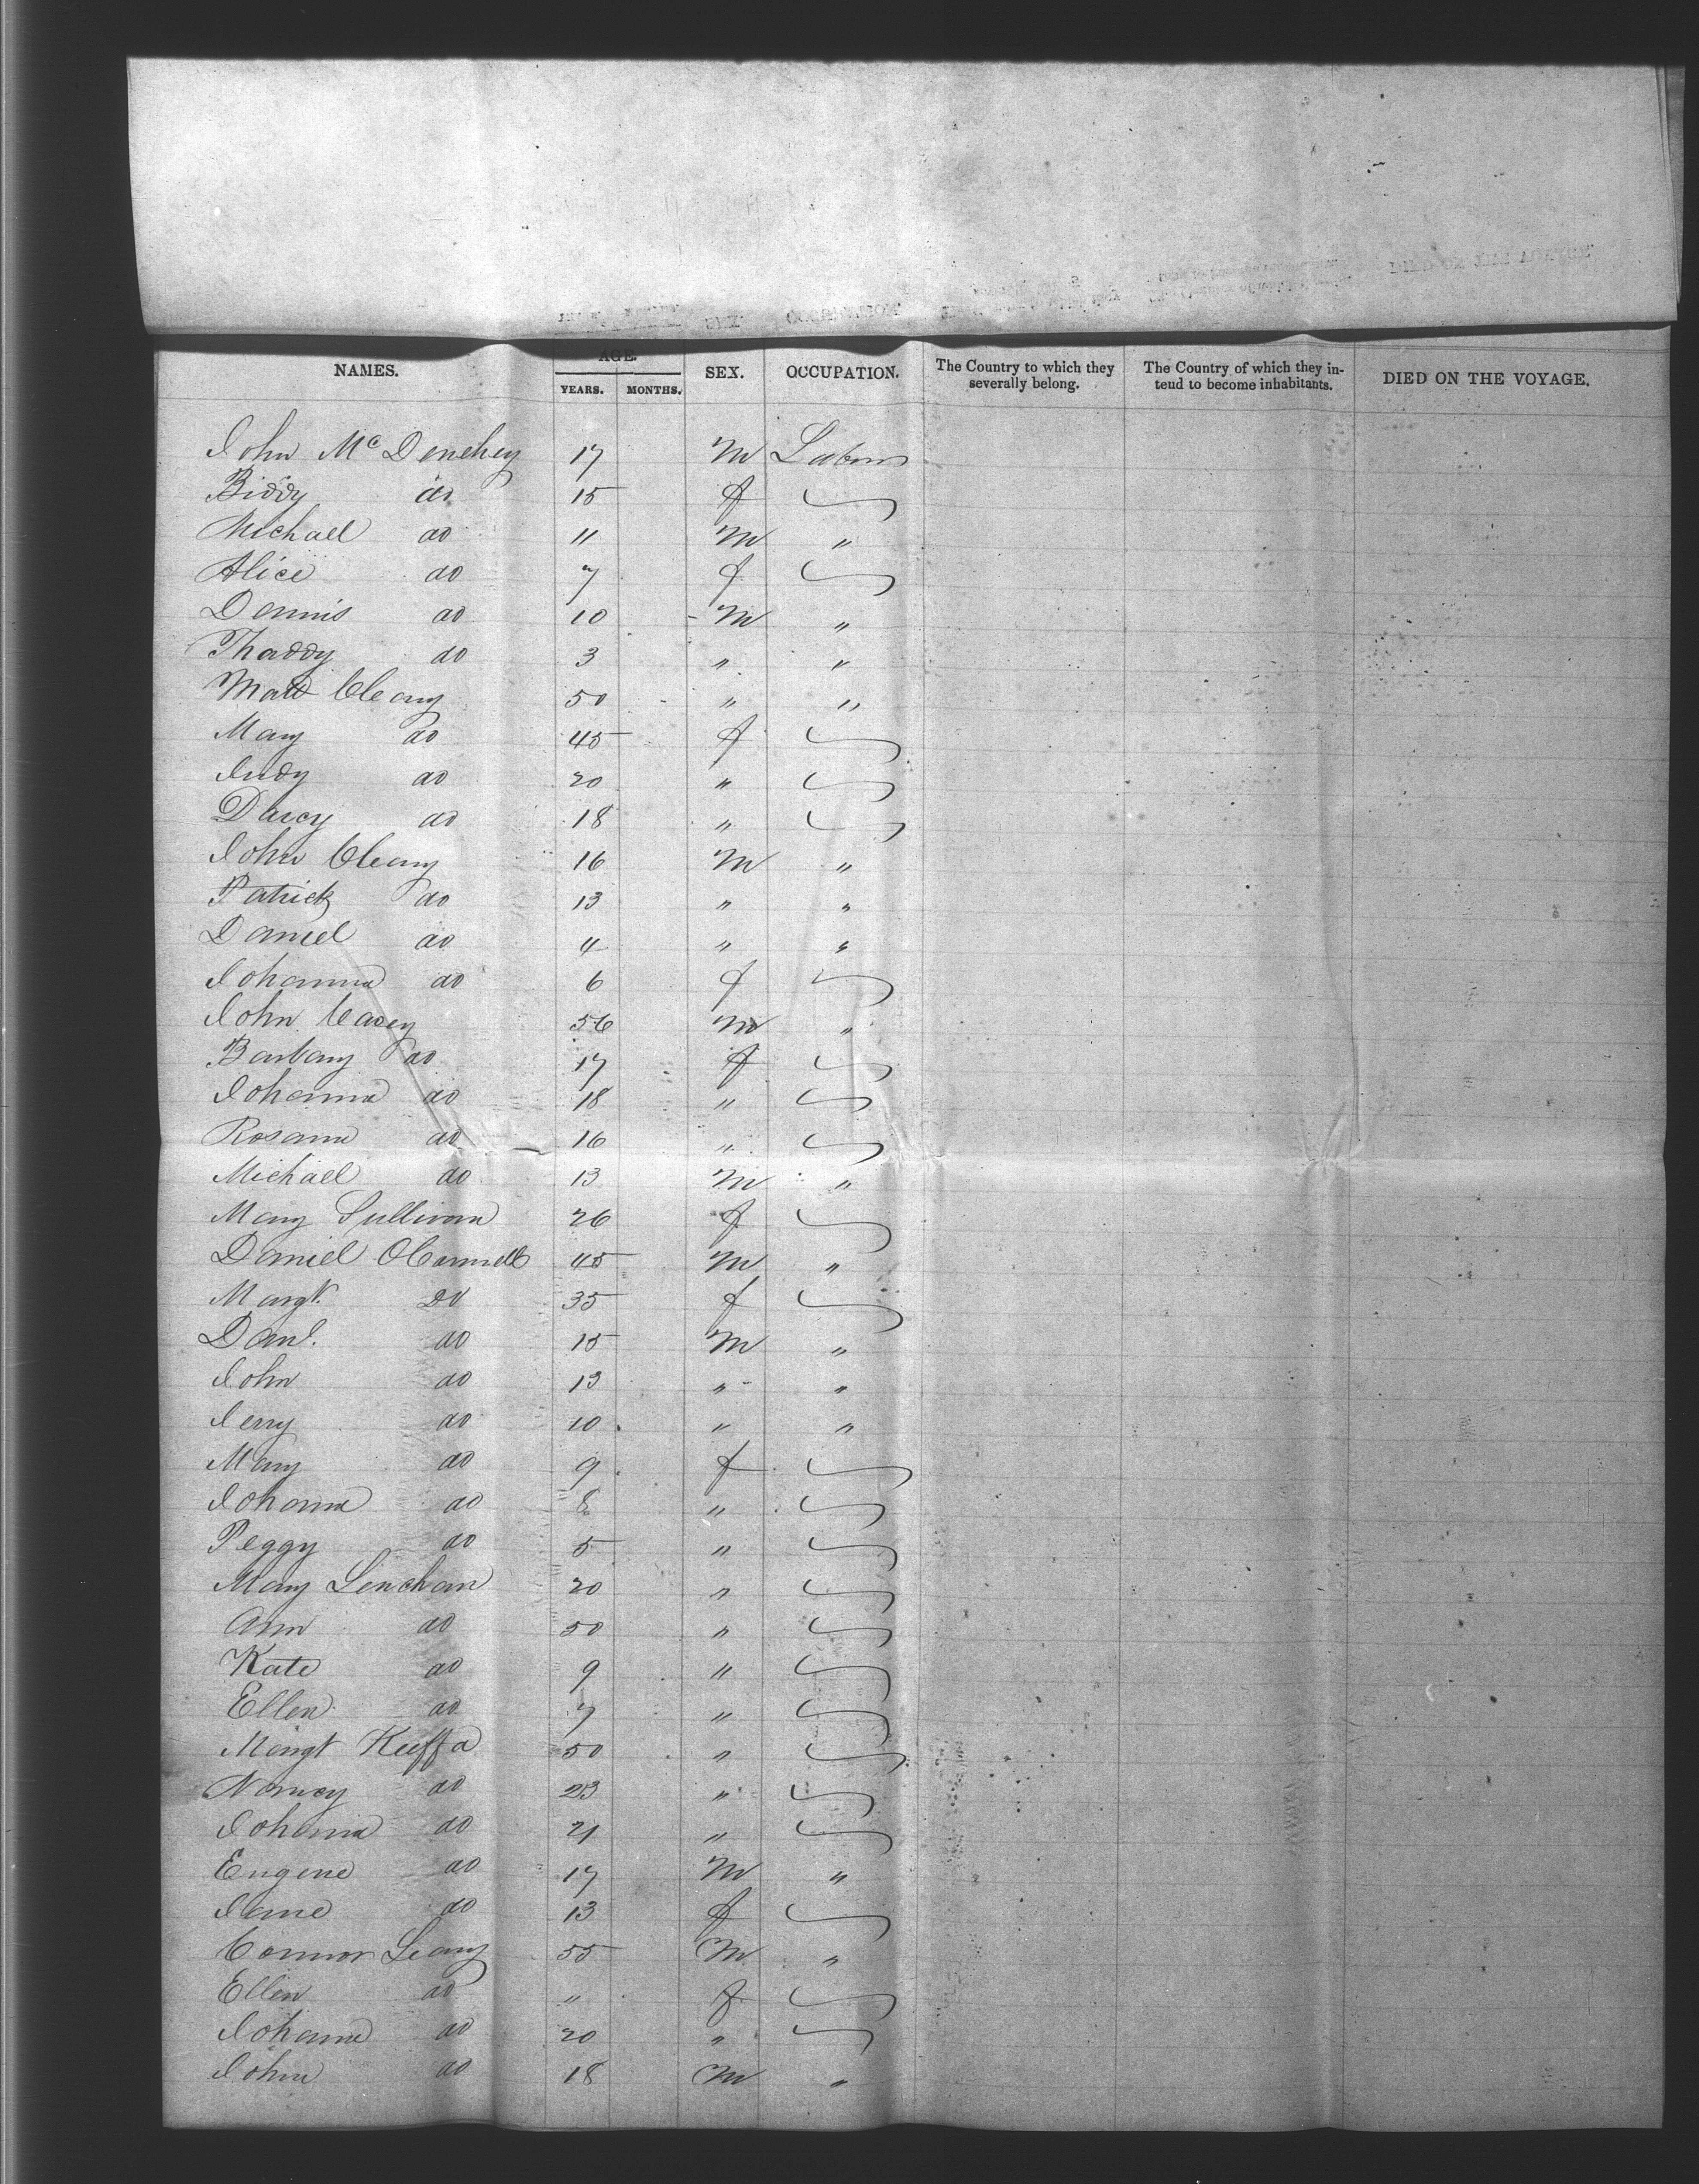 NAMES. AGE. YEARS. MONTHS. SEX. OCCUPATION. The Country to which they severally belong. The Country of which they intend to become inhabitants. DIED ON THE VOYAGE.
John McDenehey 17 M Labour
Biddy do 15 f
Michael do 11 M "
Alice do 7 f
Dennis do 10 M "
Thaddy do 3 " "
Matt Cleary 50 " "
Mary do 45 f
Judy do 20 "
Darcy do 18 "
John Cleary 16 M "
Patrick do 13 " "
Daniel do 4 " "
Johanna do 6 f
John Casey 56 M "
Barbary do 17 f
Johanna do 18 "
Rosanna do 16 "
Michael do 13 M "
Mary Sullivan 26 f
Daniel OConnell 45 M "
Margt. Do 35 f
Danl. do 15 M "
John do 13 " "
Jerry do 10 " "
Mary do 9 f
Johanna do 8 "
Peggy do 5 "
Mary Linehan 20 "
Ann do 50 "
Kate do 9 "
Ellen do 7 "
Margt Keiffa 50 "
Nancy do 23 "
Johanna do 21 "
Eugene do 17 M "
Jane do 13 f
Connor Leary 55 M "
Ellen do " f
Johanna do 20 "
John do 18 M "